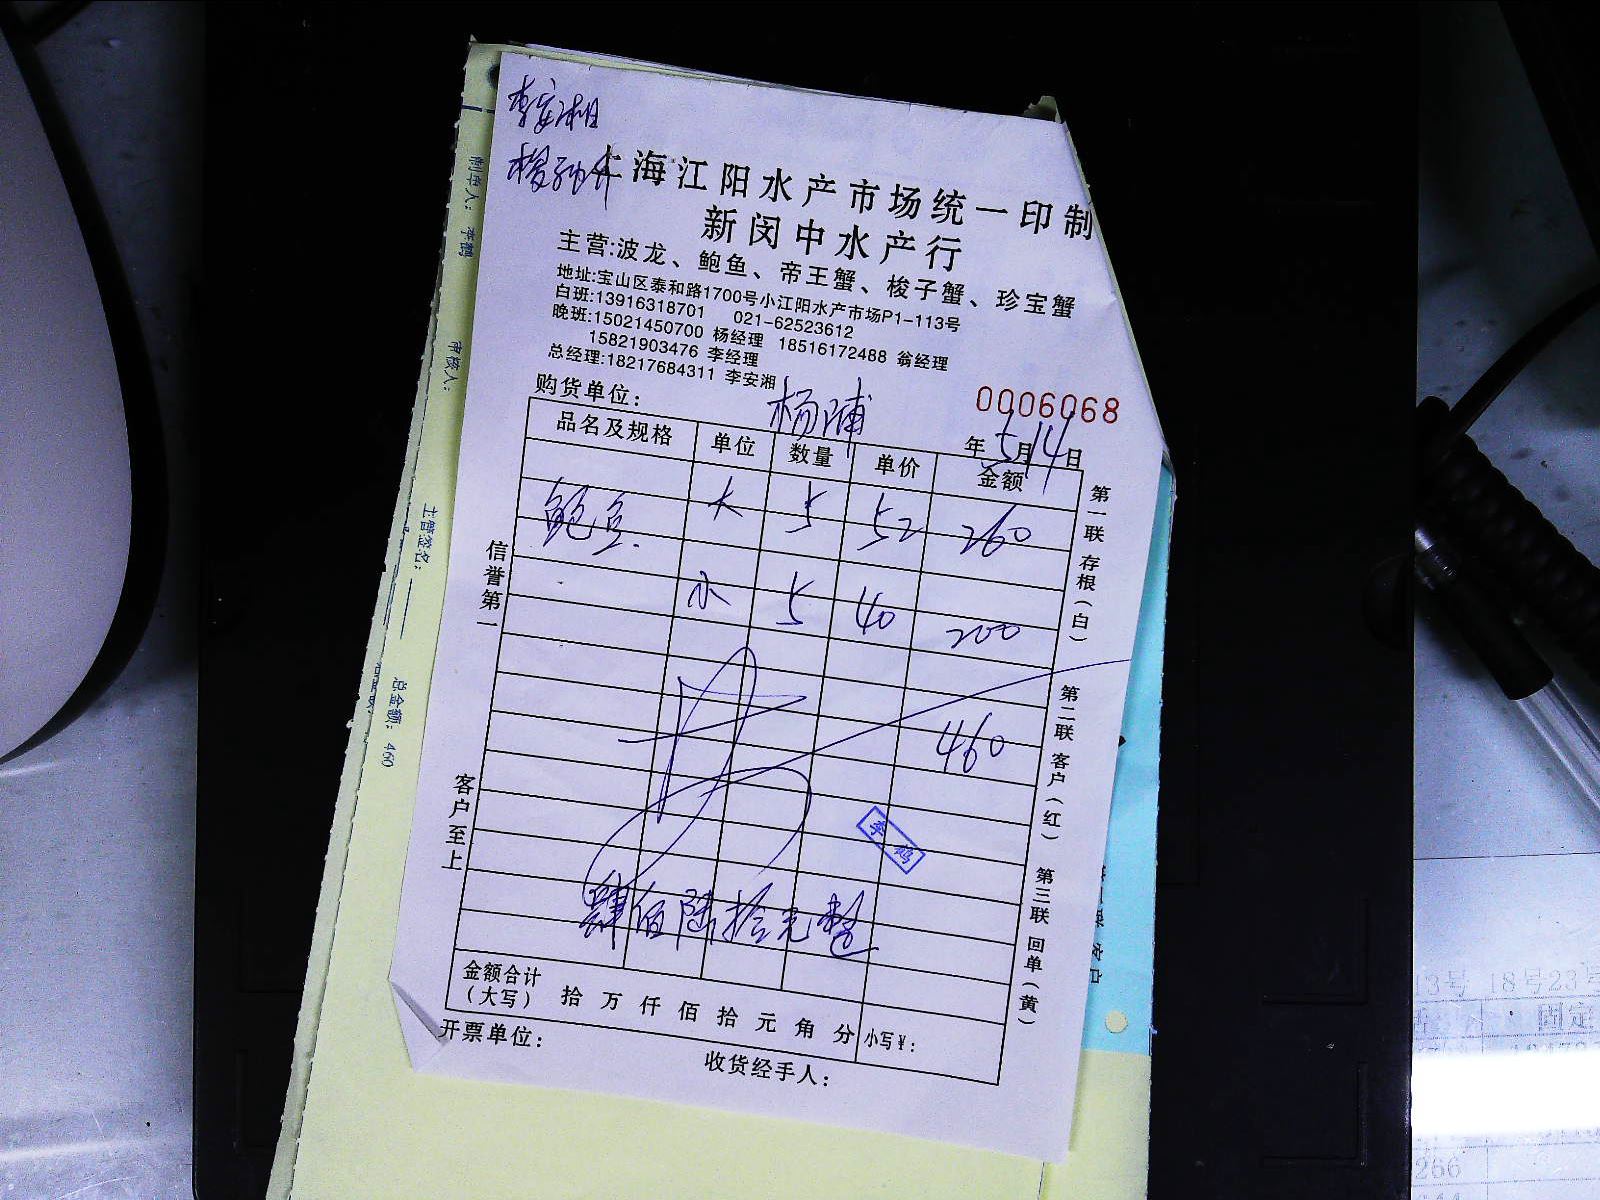 李安湘
上海江阳水产市场统一印制
新闵中水产行
主营:波龙、鲍鱼、帝王蟹、梭子蟹、珍宝蟹
地址:宝山区泰和路1700号小江阳水产市场P1-113号
白班:13916318701 021-62523612
晚班:15021450700 杨经理 18516172488 翁经理
15821903476 李经理
总经理:18217684311 李安湘
购货单位: 杨浦
0006068
年5月14日
品名及规格 单位 数量 单价 金额
鲍鱼 大 5 52 260
小 5 40 200
460
李鹤
肆佰陆拾元整
金额合计
(大写) 拾 万 仟 佰 拾 元 角 分 小写¥:
开票单位:
收货经手人:
信誉第一
客户至上
第一联 存根(白)
第二联 客户(红)
第三联 回单(黄)
制单人: 李鹤
审核人:
主管签名:
总金额: 460
13号 18号23号
固定
266